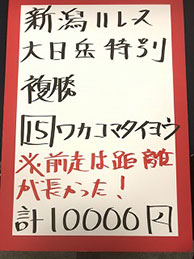 新潟11レス
大日岳特別
複勝
15ワカコマタイヨウ
※前走は距離
が長かった!
計10000円